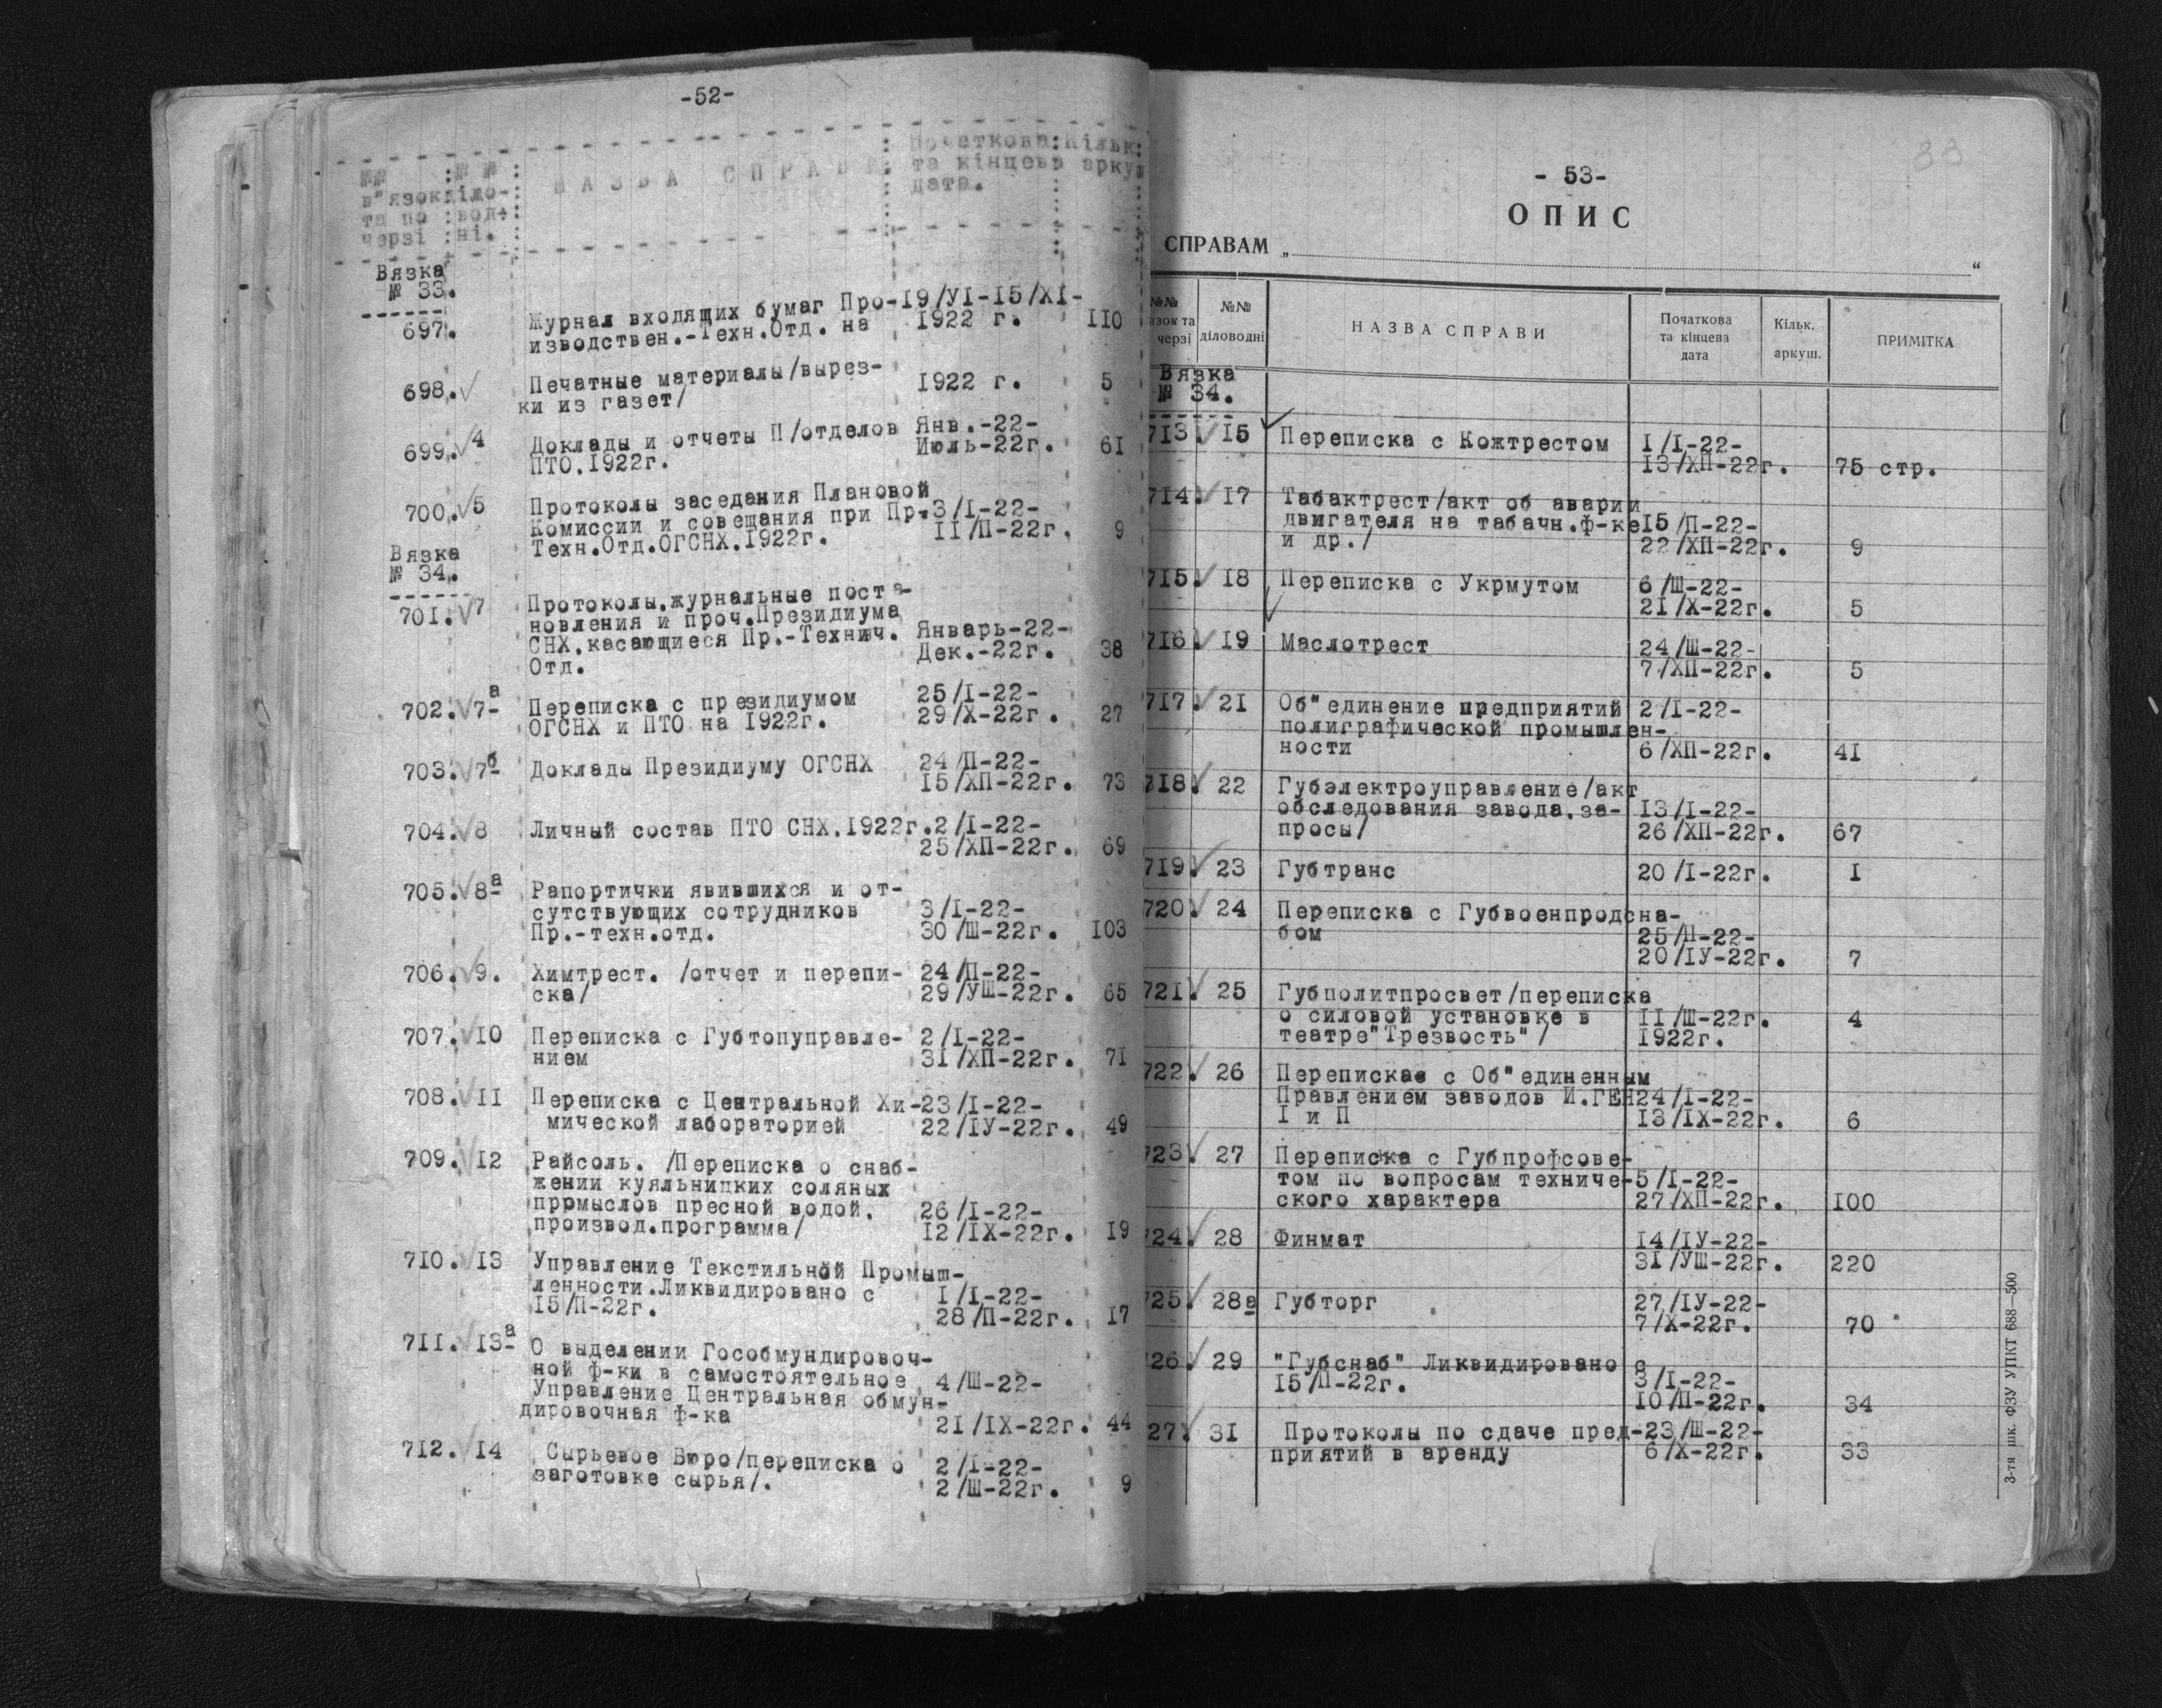 -52-
№№ :№ №: Початкова:Кільк:
в"язок:діло-: НАЗВА СПРАВИ : та кінцева аркуш
та по :вод-: дата.
черзі :ні. :
Вязка
№ 33.
697. Журнал входящих бумаг Про-19/УI-15/XI-
изводствен.-Техн.Отд. на 1922 г. 110
698. Печатные материалы/вырез-
ки из газет/ 1922 г. 5
699. 4 Доклады и отчеты П/отделов Янв.-22-
ПТО.1922г. Июль-22г. 61
700. 5 Протоколы заседания Плановой
Комиссии и совещания при Пр.3/I-22-
Техн.Отд.ОГСНХ.1922г. II/П-22г. 9
Вязка
№ 34.
701. 7 Протоколы,журнальные поста-
новления и проч.Президиума
СНХ,касающиеся Пр.-Технич. Январь-22-
Отд. Дек.-22г. 38
702. 7-а Переписка с президиумом 25/I-22-
ОГСНХ и ПТО на 1922г. 29/X-22г. 27
703. 7-б Доклады Президиуму ОГСНХ 24/П-22-
15/ХП-22г. 73
704. 8 Личный состав ПТО СНХ.1922г.2/I-22-
25/ХП-22г. 69
705. 8-а Рапортички явившихся и от-
сутствующих сотрудников 3/I-22-
Пр.-техн.отд. 30/Ш-22г. 103
706. 9. Химтрест. /отчет и перепи- 24/П-22-
ска/ 29/УШ-22г. 65
707. 10 Переписка с Губтопуправле- 2/I-22-
нием 31/ХП-22г. 71
708. II Переписка с Центральной Хи-23/I-22-
мической лабораторией 22/IУ-22г. 49
709. 12 Райсоль. /Переписка о снаб-
жении куяльницких соляных
прромыслов пресной водой, 26/I-22-
производ.программа/ 12/IX-22г. 19
710. 13 Управление Текстильной Промыш-
ленности.Ликвидировано с I/I-22-
15/П-22г. 28/П-22г. 17
711. 13-а О выделении Гособмундировоч-
ной ф-ки в самостоятельное 4/Ш-22-
Управление Центральная обмун-
дировочная ф-ка 21/IX-22г. 44
712. 14 Сырьевое Бюро/переписка о 2/I-22-
заготовке сырья/. 2/Ш-22г. 9
33
- 53-
ОПИС
СПРАВАМ „ “
№№
язок та
черзі
№№
діловодні
НАЗВА СПРАВИ
Початкова
та кінцева
дата
Кільк.
аркуш.
ПРИМІТКА
Вязка
№ 34.
713. 15 Переписка с Кожтрестом I/I-22-
13/ХП-22г. 75 стр.
714. 17 Табактрест/акт об аварии
двигателя на табачн.ф-ке 15/П-22-
и др./ 22/ХП-22г. 9
715. 18 Переписка с Укрмутом 6/Ш-22-
21/X-22г. 5
716. 19 Маслотрест 24/Ш-22-
7/ХП-22г. 5
717. 21 Об"единение предприятий 2/I-22-
полиграфической промышлен-
ности 6/ХП-22г. 41
718. 22 Губэлектроуправление/акт
обследования завода,за- 13/I-22-
просы/ 26/ХП-22г. 67
719. 23 Губтранс 20/I-22г. I
720. 24 Переписка с Губвоенпродсна-
бом 25/П-22-
20/IУ-22г. 7
721. 25 Губполитпросвет/переписка
о силовой установке в II/Ш-22г. 4
театре"Трезвость"/ 1922г.
722. 26 Перепискае с Об"единенным
Правлением заводов И.ГЕН 24/I-22-
I и П 13/IX-22г. 6
723. 27 Переписка с Губпрофсове-
том по вопросам техниче-5/I-22-
ского характера 27/ХП-22г. 100
724. 28 Финмат 14/IУ-22-
31/УШ-22г. 220
725. 28а Губторг 27/IУ-22-
7/X-22г. 70
726. 29 "Губснаб" Ликвидировано с
15/П-22г. 3/I-22-
10/П-22г. 34
727. 31 Протоколы по сдаче пред-23/Ш-22-
приятий в аренду 6/X-22г. 33
3-тя шк. ФЗУ УПКТ 688—500